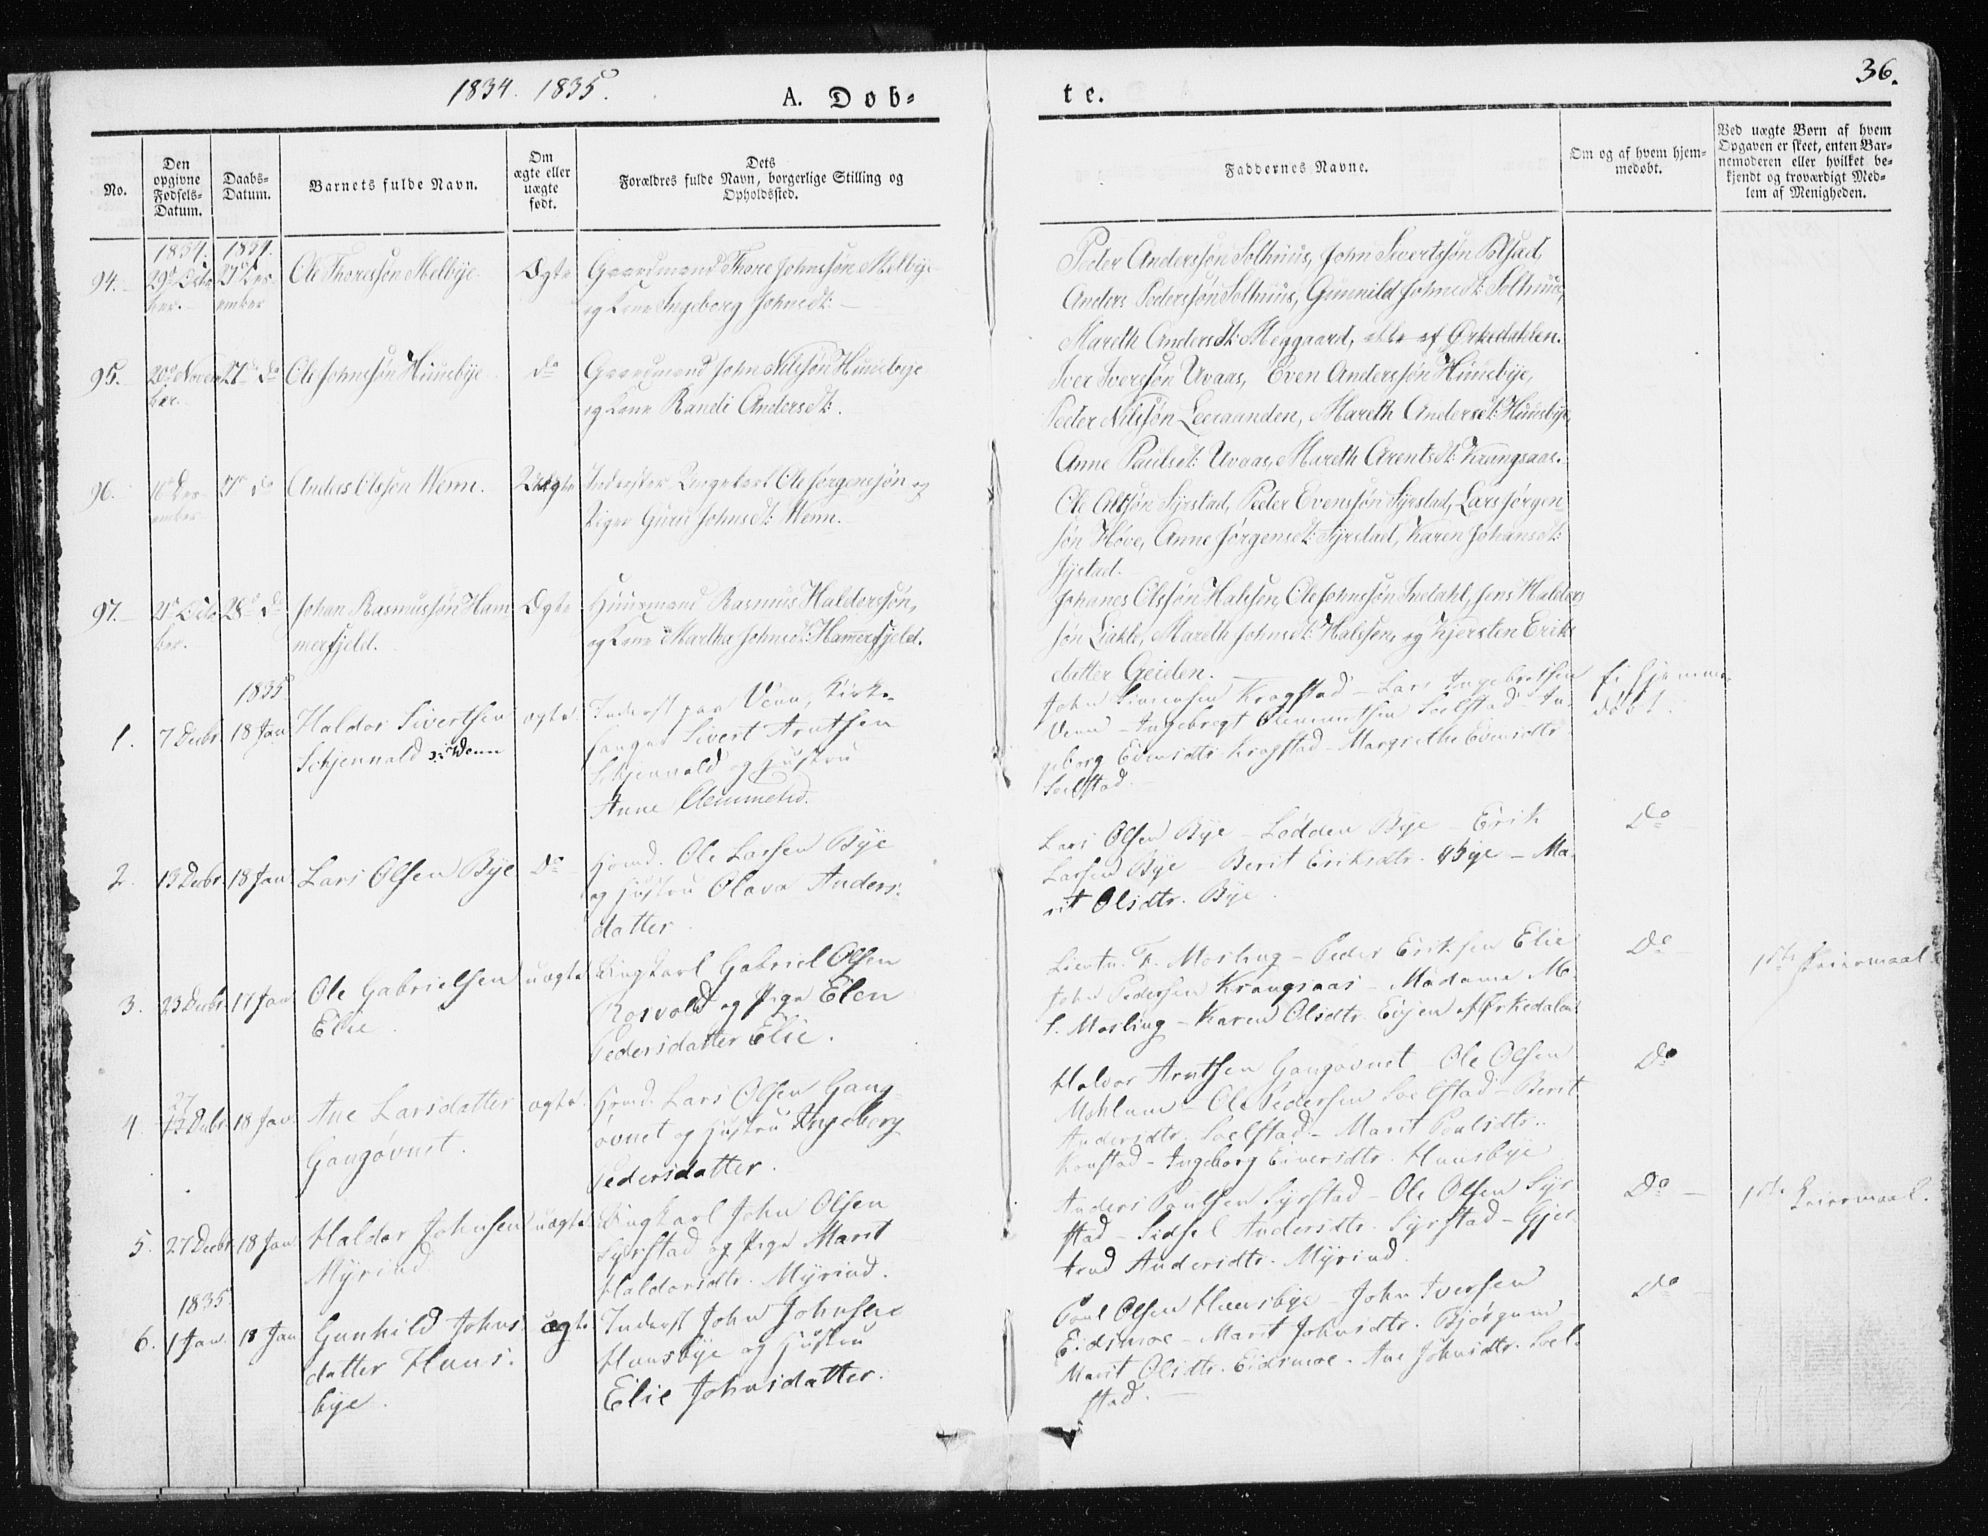 1834. 1835.
A. Døb-
te.
36.
No.
Den opgivne Fødsels-Datum.
Daabs-Datum.
Barnets fulde Navn.
Om ægte eller uægte født.
Dets Forældres fulde Navn, borgerlige Stilling og Opholdssted.
Faddernes Navne.
Om og af hvem hjemmedøbt.
Ved uægte Børn af hvem Opgaven er skeet, enten Barnemoderen eller hvilket bekjendt og troværdigt Medlem af Menigheden.
1834. 1834.
94. 29de Octo- 27de Dec- Ole Thoressøn Melbye Ægte Gaardmand Thore Johnssøn Melbye
ber. ember og Kone Ingeborg Johnsdt:
Peder Anderssøn Solhuus, John Sivertssøn Rostad,
Anders Pederssøn Solhuus, Gunnild Johnsdt: Solhuus,
Mareth Andersdt: Meggaard, alle af Ørkedahlen.
95. 20de Novem- 27de do Ole Johnssøn Huusbye do Gaardmand John Nilssøn Huusbye
ber. og Kone Randi Andersdt:.
Iver Iverssøn Uvaas, Even Anderssøn Huusbye,
Peder Nilssøn Leeraanden, Mareth Andersdt: Huusbye,
Anne Paulsdt: Uvaas, Mareth Arentsdt: Krangsaas.
96. 16de Dec- 27de do Anders Olssøn Wenn. Uægte Inderster Ungekarl Ole Jørgenssøn og
ember Pigen Guru Johnsdt: Wenn.
Ole Olssøn Syrstad, Peder Evenssøn Syrstad, Lars Jørgen-
søn Høve, Anne Jørgensdt: Syrstad, Karen Johansdt:
Syrstad.
97. 21de Octo- 28de do Johan Rasmussøn Ham- Ægte Huusmand Rasmus Halderssøn,
ber. merfjeld. og Kone Martha Johnsdt: Hamerfjeld.
Johanes Olssøn Halssen, Ole Johnssøn Indahl, Jens Halders-
søn Liakle, Mareth Johnsdt: Halssen, og Kjersten Eriks-
datter Geiden.
1835
1. 7 Decbr. 18 Jan Haldor Sivertsen ægte Inderst paa Venn, Kirke-
Schjennald Wenn sanger Sivert Arntsen
Schjennald og Hustru
Anne
John Simensen Krogstad – Lars Ingebretsen
Venn – Ingebregt Clemmetsen Soelstad – In-
geborg Evensdtr. Krogstad – Margrethe Evensdtr.
Soelstad.
Ei hjemme-
døbt.
2. 13 Decbr. 18 Jan Lars Olsen Bye Do Hsmd. Ole Larsen Bye
og Hustru Olava Anders-
datter.
Lars Olsen Bye – Lødden Bye – Erik
Larsen Bye Berit Eriksdtr. Bye – Ma-
rit Olsdtr. Bye.
Do
3. 23 Decbr. 17 Jan Ole Gabrielsen uægte Ungkarl Gabriel Olsen
Elie. Rosvold og Pige Elen
Pedersdatter Elie.
Lieutn. F. Mosling – Peder Eriksen Elie
John Pedersen Krangsaas – Madame M.
L. Mosling – Karen Olsdtr. Evjen af Ørkedalen.
Do 1ste Leiermaal.
4. 27 Decbr. 18 Jan Ane Larsdatter ægte. Hsmd. Lars Olsen Gang-
Gangøvnet. øvnet og Hustru Ingeborg
Pedersdatter.
Halvor Arntsen Gangøvnet – Ole Olsen
– Ole Pedersen Soelstad – Berit
Andersdtr. Soelstad – Marit Poulsdtr.
– Ingeborg Eversdtr. Huusbye
Do
5. 27 Decbr. 18 Jan Haldor Johnsen uægte Ungkarl John Olsen
Myrind Syrstad og Pige Marit
Haldorsdtr. Myrind.
Anders Poulsen Syrstad – Ole Olsen Syr-
stad – Sidsel Andersdtr. Syrstad – Gjer-
trud Andersdtr. Myrind.
Do 1ste Leiermaal.
1835.
6. 1 Jan. 18 Jan Gunhild Johns- ægte Inderst John Johnsen
datter Huus- Huusbye og Hustru
bye. Elie Johnsdatter.
Poul Olsen Huusbye – John Iversen
Eidsmoe – Marit Johnsdtr. Bjørgum
Marit Olsdtr. Eidsmoe. Ane Johnsdtr. Soel-
stad.
Do